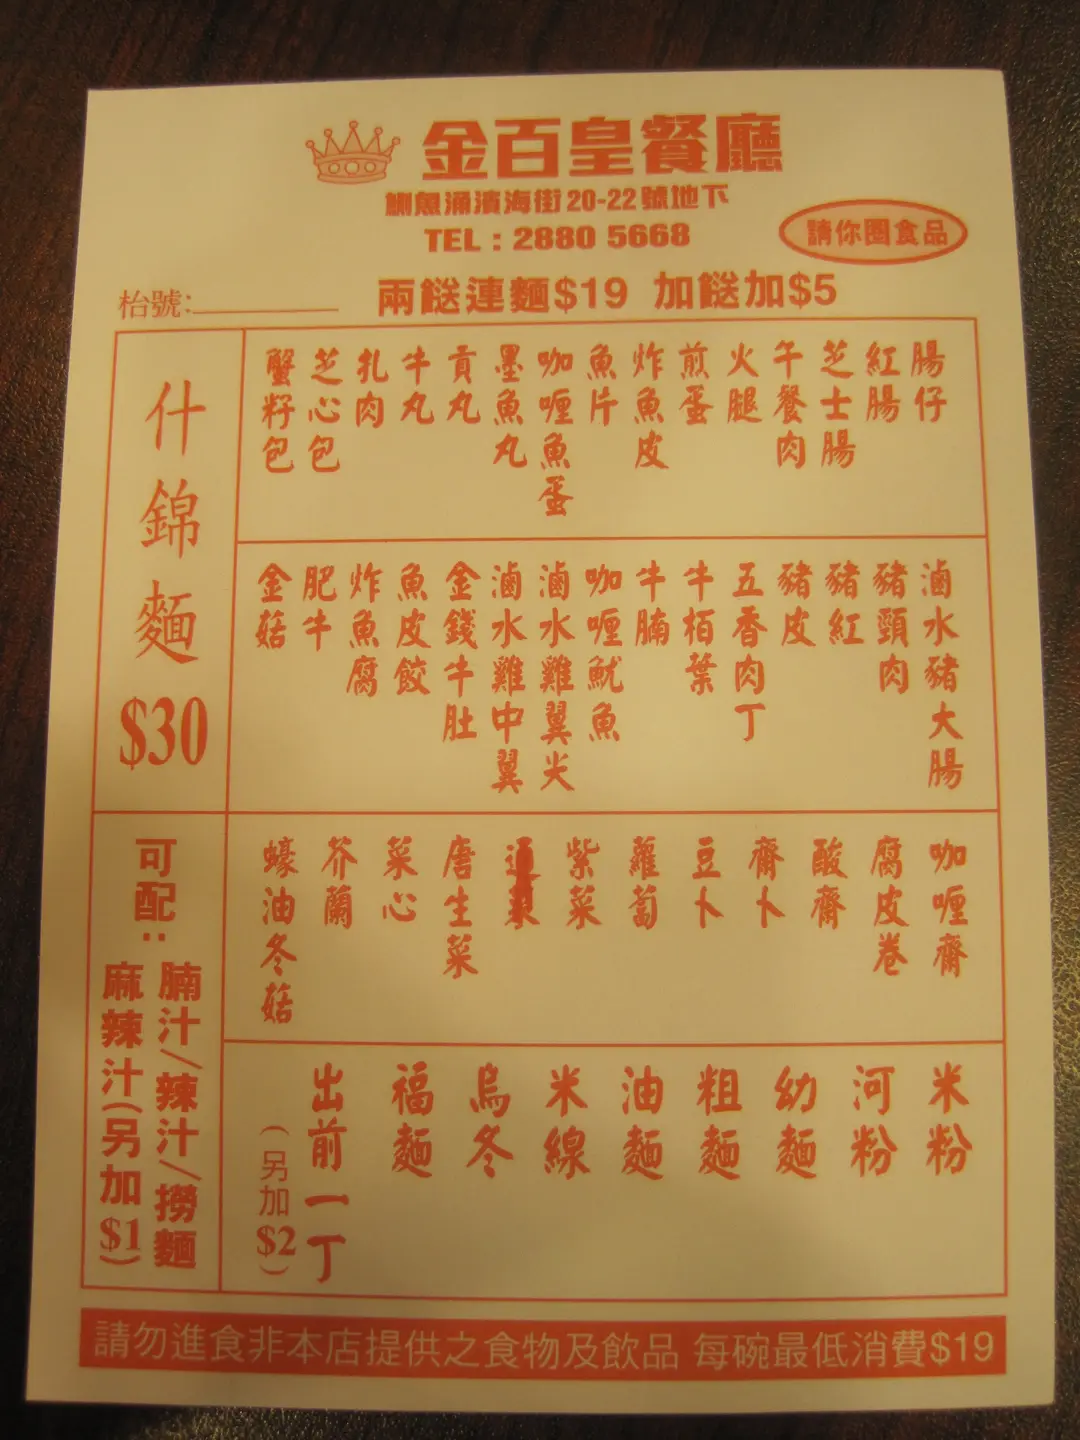 金百皇餐廳
鰂魚涌濱海街20-22號地下
TEL : 2880 5668
請你圈食品
枱號:
兩餸連麵$19 加餸加$5
腸仔
紅腸
芝士腸
午餐肉
火腿
煎蛋
炸魚皮
魚片
咖喱魚蛋
墨魚丸
貢丸
牛丸
扎肉
芝心包
蟹籽包
什錦麵$30
滷水豬大腸
豬頸肉
豬紅
豬皮
五香肉丁
牛栢葉
牛腩
咖喱魷魚
滷水雞翼尖
滷水雞中翼
金錢牛肚
魚皮餃
炸魚腐
肥牛
金菇
咖喱齋
腐皮卷
酸齋
齋卜
豆卜
蘿蔔
紫菜
唐生菜
菜心
芥蘭
蠔油冬菇
米粉
河粉
幼麵
粗麵
油麵
米線
烏冬
福麵
出前一丁
(另加$2)
可配:
腩汁/辣汁/撈麵
麻辣汁(另加$1)
請勿進食非本店提供之食物及飲品 每碗最低消費$19